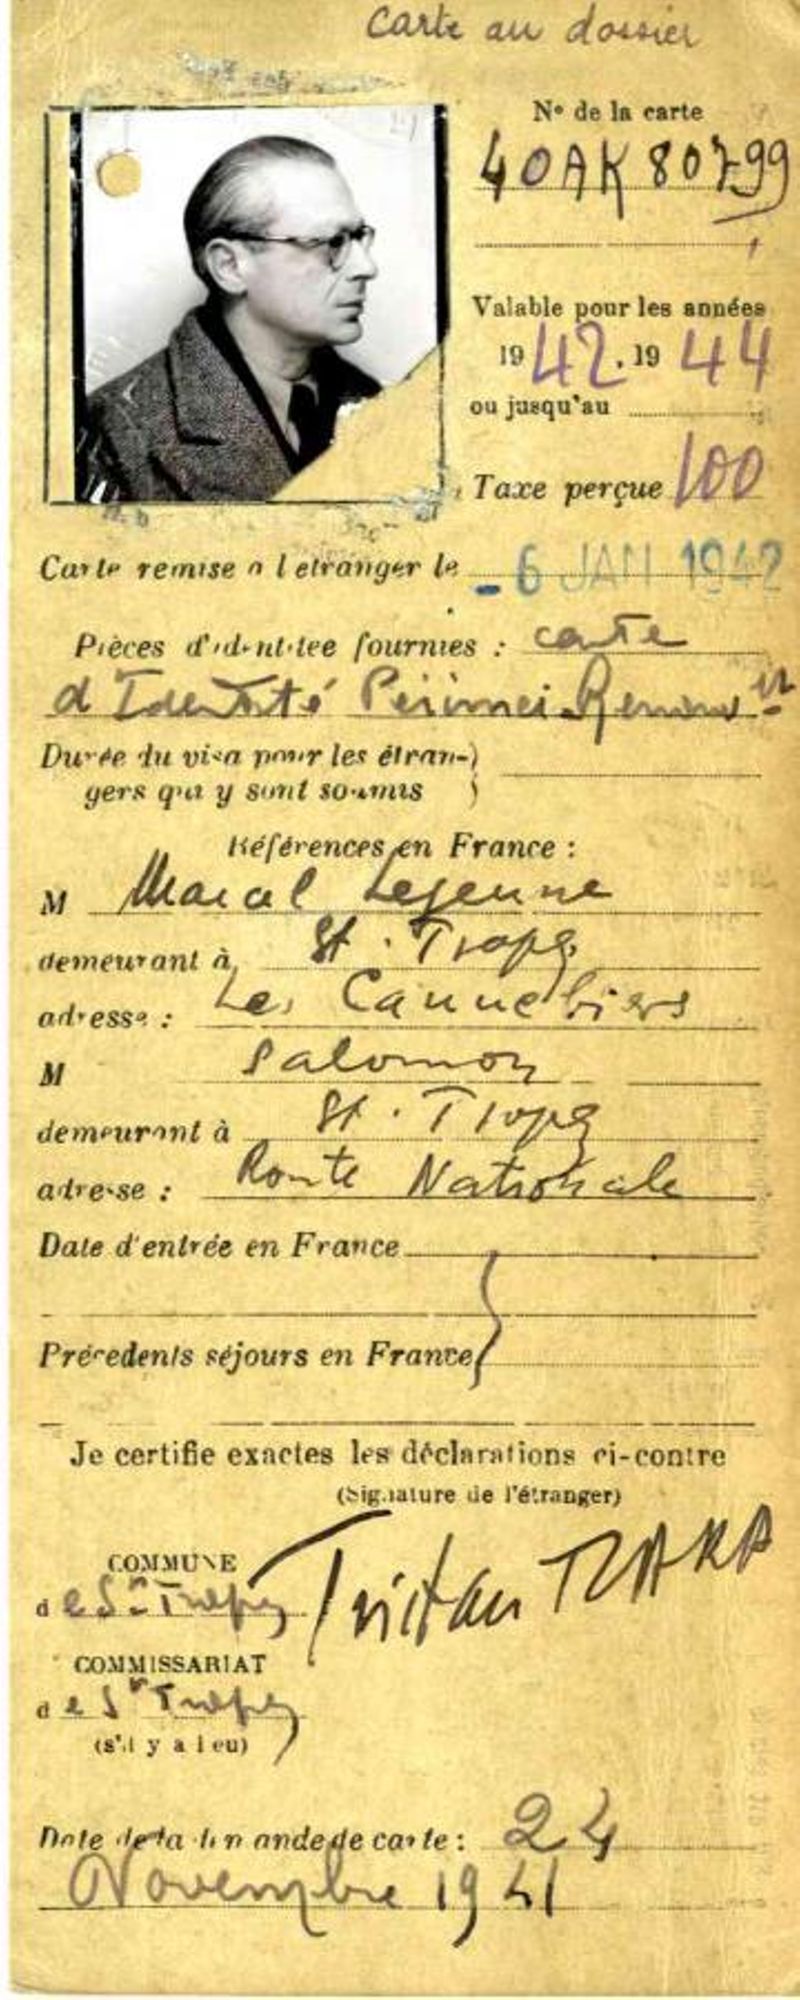 Carte au dossier
Nº de la carte
40AK 80799
Valable pour les années
19 42. 19 44
ou jusqu'au
Taxe perçue 100
Carte remise a l etranger le - 6 JAN 1942
Pièces d'identitee fournies : carte
d Identité
Durée du visa pour les étran-)
gers qui y sont soumis )
Références en France :
M Marcel Lejeune
demeurant à St. Tropez
adresse : Les Cannebiers
M Salomon
demeurant à St. Tropez
adresse : Route Nationale
Date d'entrée en France
Précedents séjours en France
Je certifie exactes les déclarations ci-contre
(Signature de l'étranger)
Tristan TZARA
COMMUNE
d e St Tropez
COMMISSARIAT
d e St Tropez
(s'il y a lieu)
Date de la demande de carte : 24
Novembre 1941